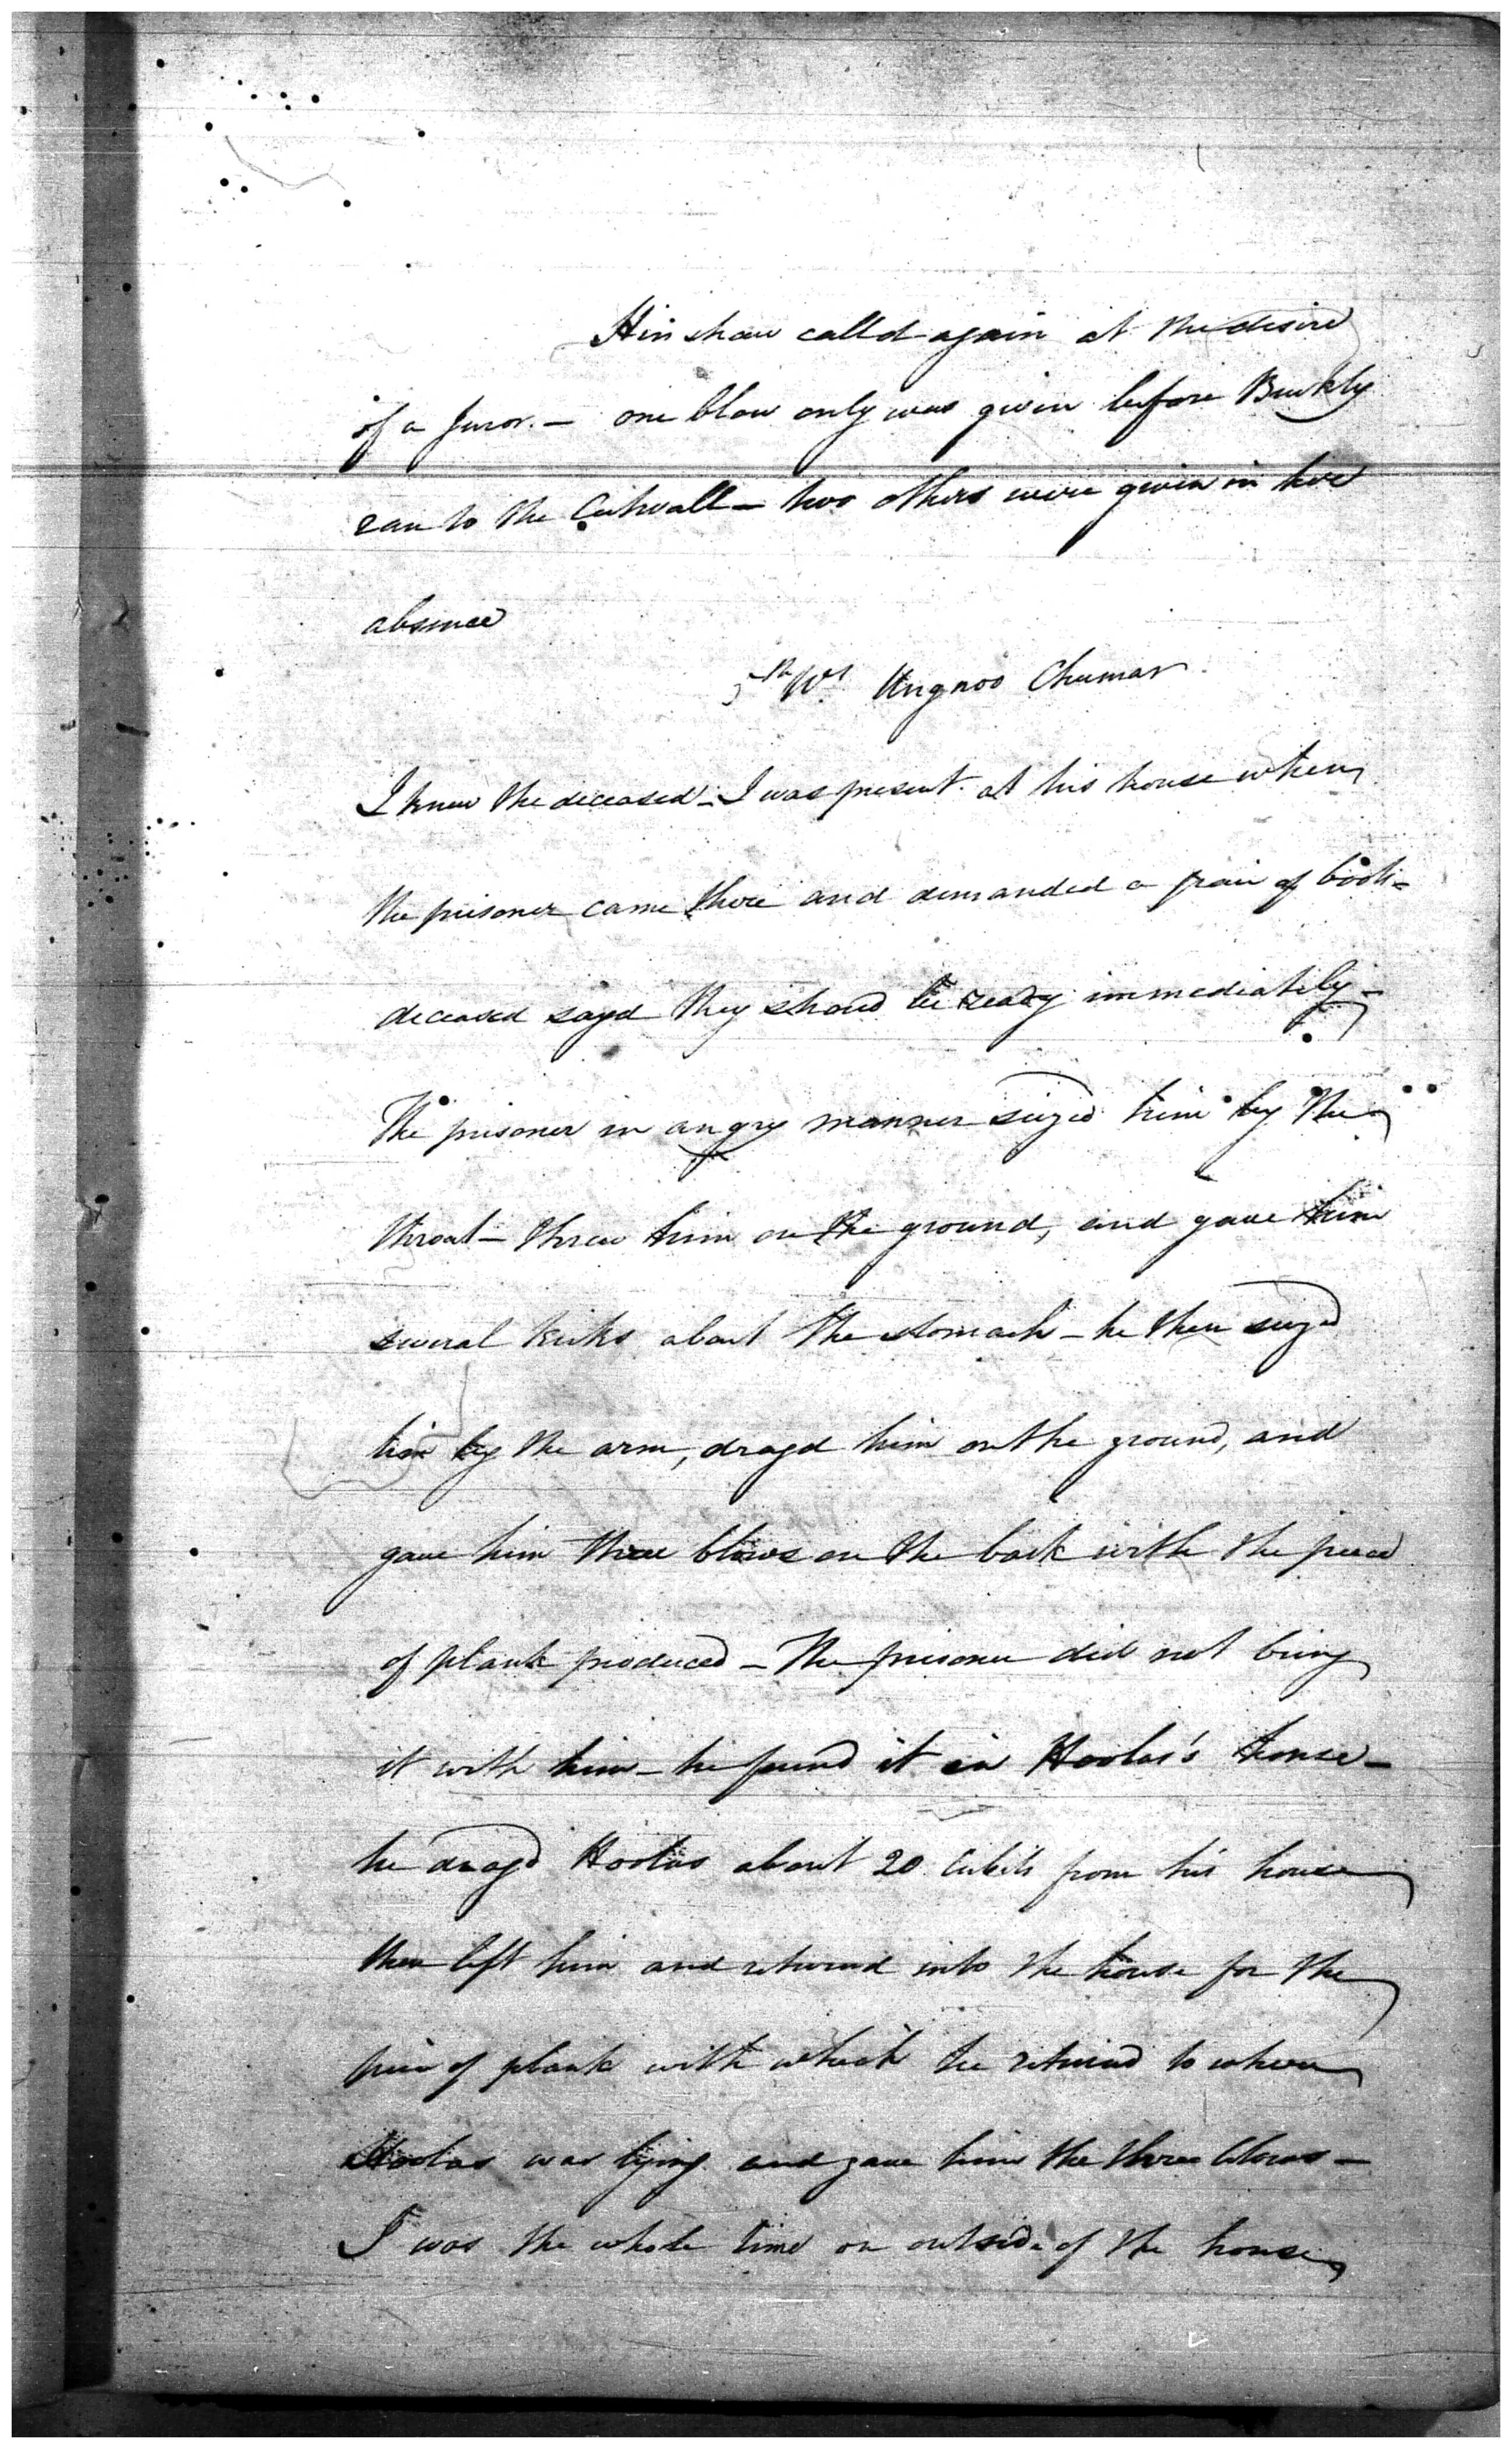 Hinshaw calld again at the desire
of a Juror. — one blow only was given before Buckly
ran to the Cutwall — two others were given in her
absence
5th Wt. Ungnoo Chumar.
I knew the deceased — I was present at his house when
the prisoner came there and demanded a pair of boots —
deceased sayd they shoud be ready immediately —
The prisoner in angry manner siezed him by the
throat — threw him on the ground, and gave him
several kicks about the stomach — he then siezd
him by the arm, dragd him on the ground, and
gave him three blows on the back with the piece
of plank produced — The prisoner did not bring
it with him — he found it in Hoolas's house —
he dragd Hoolas about 20 Cubits from his house
then left him and returnd into the house for the
piece of plank with which he returnd to where
Hoolas was lying and gave him the three blows —
I was the whole time on outside of the house